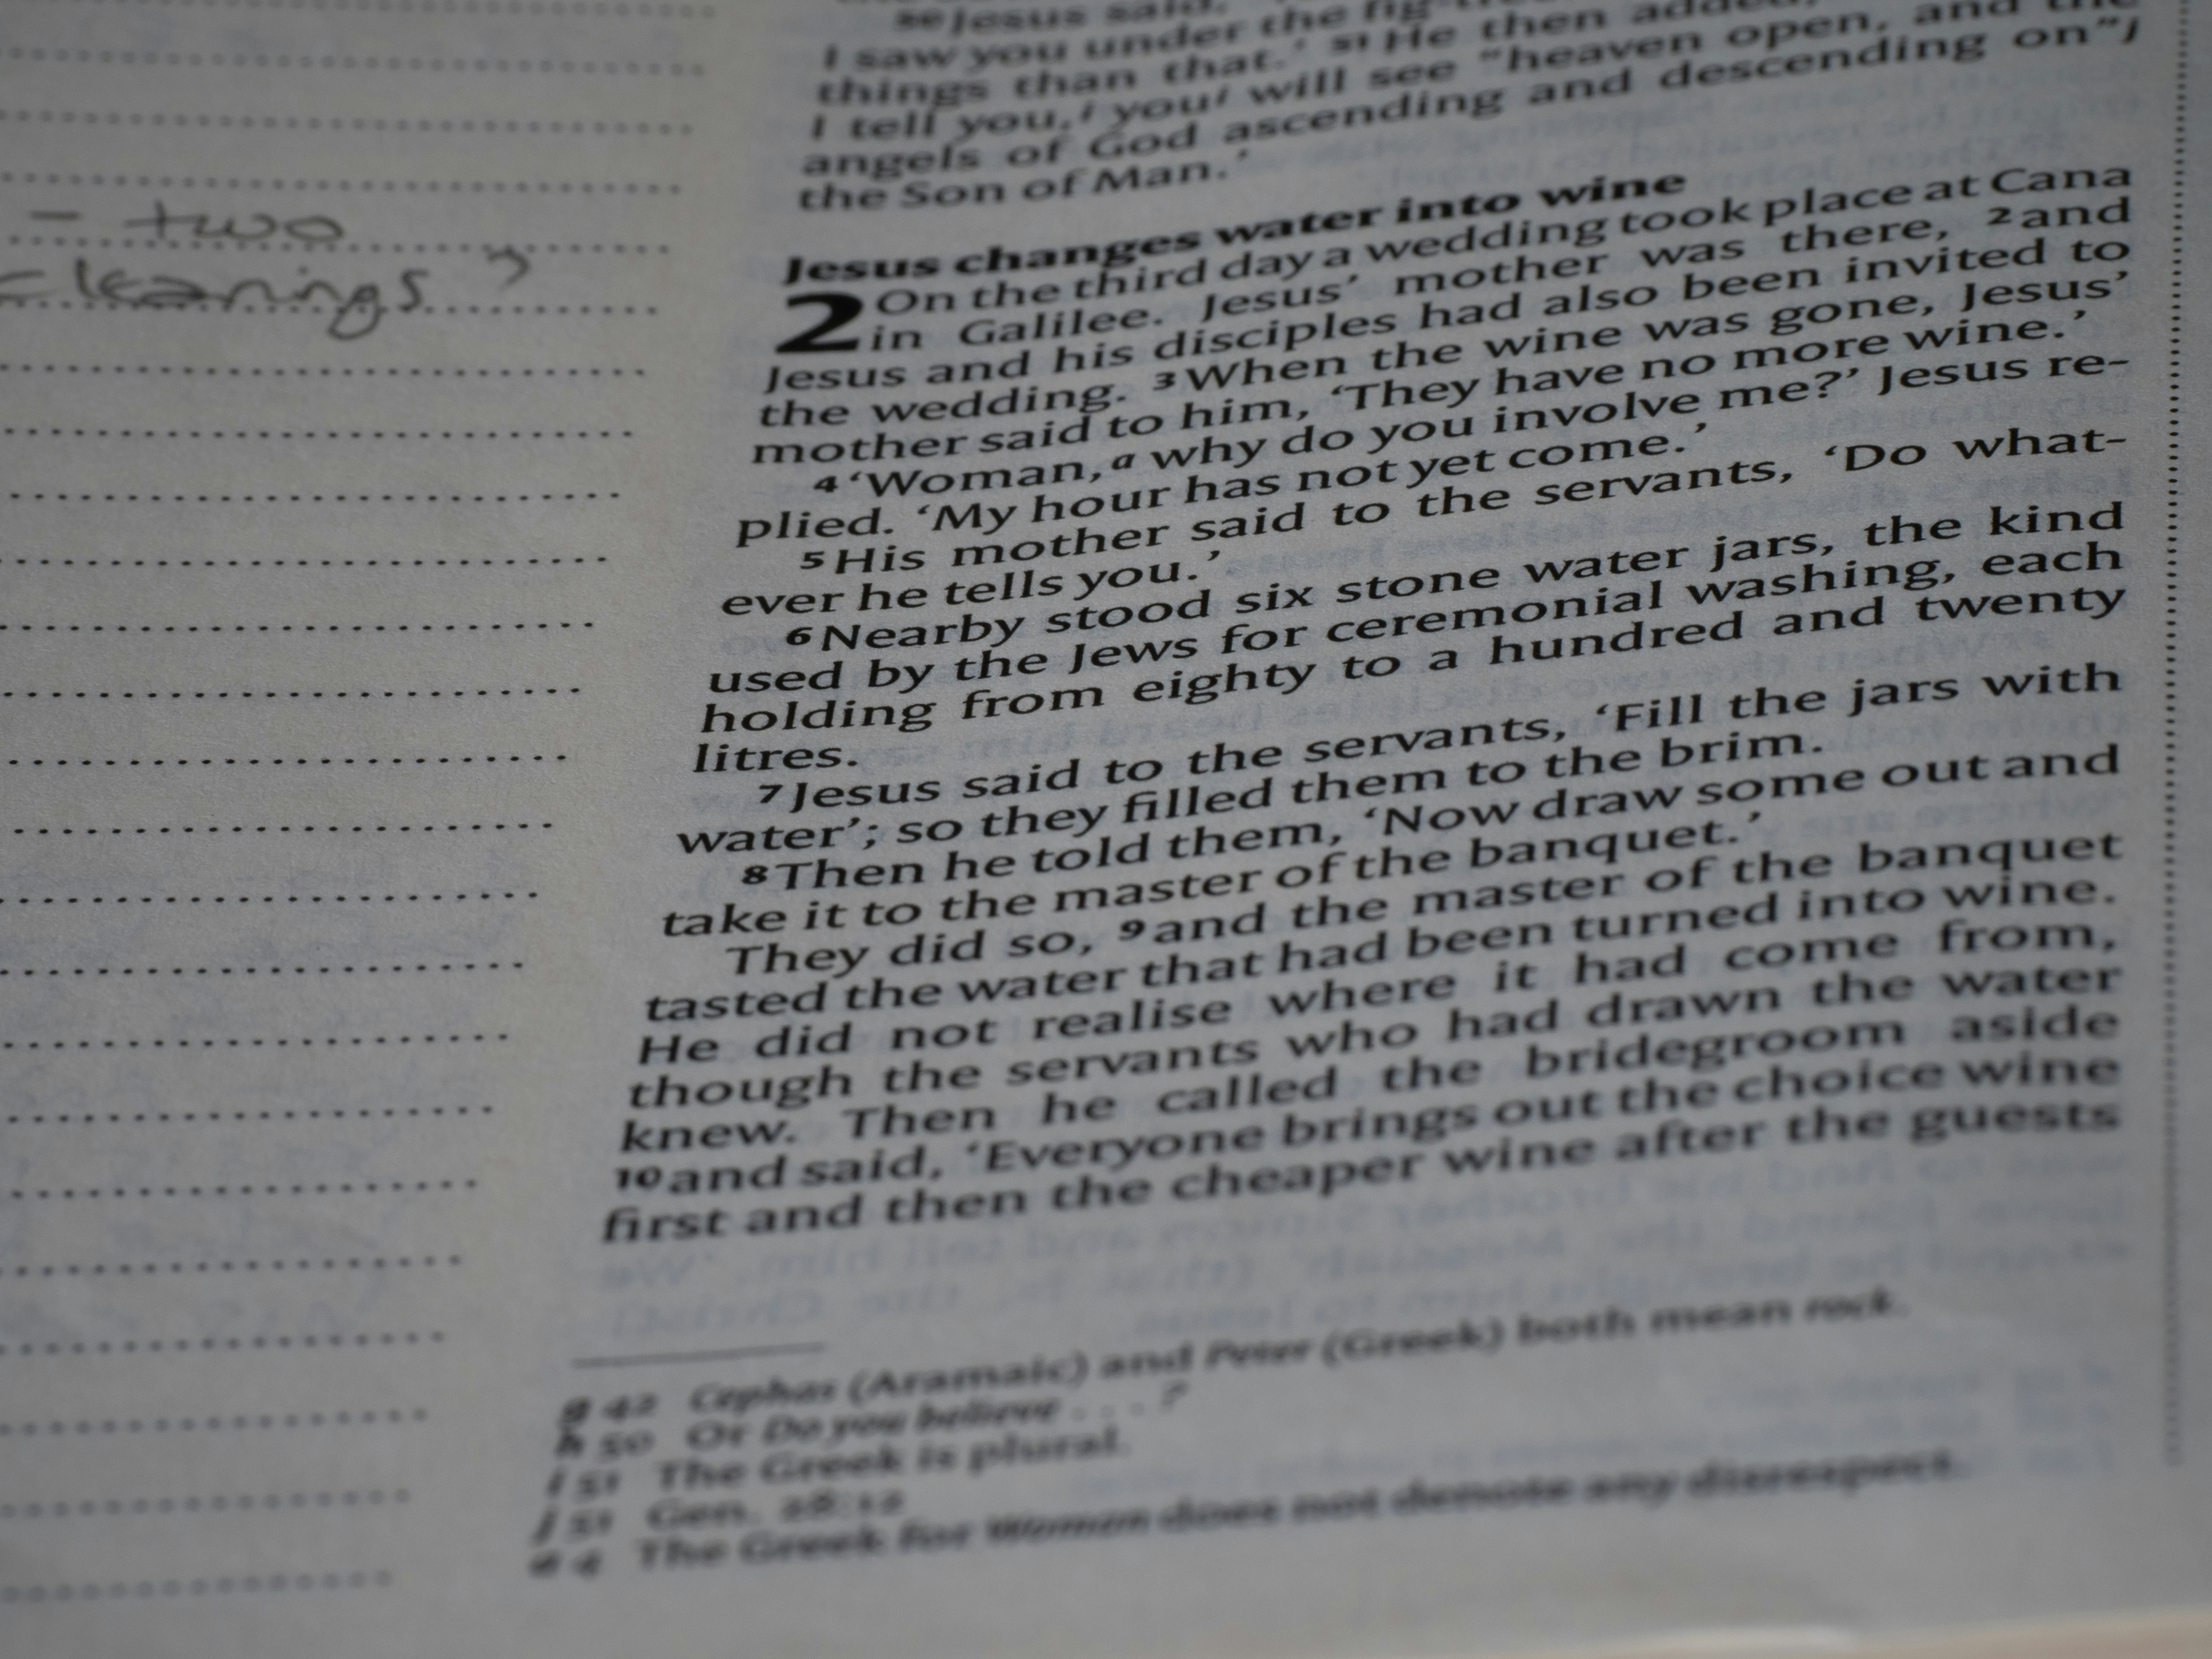 - two
cleanings?
50 Jesus said,
I saw you under the fig-
things than that.' 51 He then added,
I tell you,i youi will see "heaven open, and the
angels of God ascending and descending on"j
the Son of Man.'
Jesus changes water into wine
2 On the third day a wedding took place at Cana
in Galilee. Jesus' mother was there, 2 and
Jesus and his disciples had also been invited to
the wedding. 3 When the wine was gone, Jesus'
mother said to him, 'They have no more wine.'
4 'Woman,a why do you involve me?' Jesus re-
plied. 'My hour has not yet come.'
5 His mother said to the servants, 'Do what-
ever he tells you.'
6 Nearby stood six stone water jars, the kind
used by the Jews for ceremonial washing, each
holding from eighty to a hundred and twenty
litres.
7 Jesus said to the servants, 'Fill the jars with
water'; so they filled them to the brim.
8 Then he told them, 'Now draw some out and
take it to the master of the banquet.'
They did so, 9 and the master of the banquet
tasted the water that had been turned into wine.
He did not realise where it had come from,
though the servants who had drawn the water
knew. Then he called the bridegroom aside
10 and said, 'Everyone brings out the choice wine
first and then the cheaper wine after the guests
g 42 Cephas (Aramaic) and Peter (Greek) both mean rock.
h 50 Or Do you believe . . . ?
i 51 The Greek is plural.
j 51 Gen. 28:12
a 4 The Greek for Woman does not denote any disrespect.